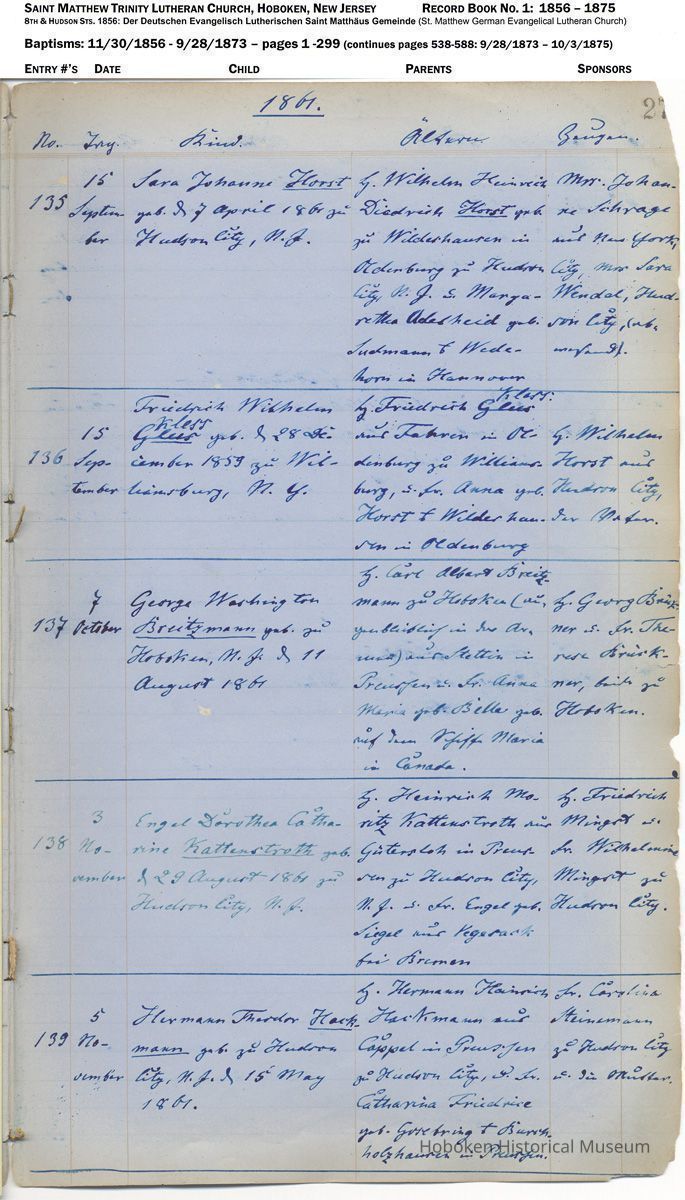 SAINT MATTHEW TRINITY LUTHERAN CHURCH, HOBOKEN, NEW JERSEY RECORD BOOK NO. 1: 1856 – 1875
8TH & HUDSON STS. 1856: Der Deutschen Evangelisch Lutherischen Saint Matthäus Gemeinde (St. Matthew German Evangelical Lutheran Church)
Baptisms: 11/30/1856 - 9/28/1873 – pages 1 -299 (continues pages 538-588: 9/28/1873 – 10/3/1875)
ENTRY #'S DATE CHILD PARENTS SPONSORS
1861.
27
No. Tag. Kind. Ältern. Zeugen.
135
15
Septem-
ber
Sara Johanne Horst
geb. d. 7 April 1861 zu
Hudson City, N. J.
H. Wilhelm Heinrich
Diedrich Horst geb.
zu Wildeshausen in
Oldenburg zu Hudson
City, N. J. u. Marga-
retha Adelheid geb.
Sudmann
horn in Hannover
Mrs. Johan-
ne Schrage
aus New York
City, Mrs Sara
Wendel, Hud-
son City, (ab-
wesend).
136
15
Sep-
tember
Friedrich Wilhelm
Kless
geb. d. 28 De-
cember 1859 zu Wil-
liamsburg, N. Y.
Kless.
H. Friedrich
aus Fahren in Ol-
denburg zu Williams-
burg, u. Fr. Anna geb.
Horst Wildeshau-
sen in Oldenburg
H. Wilhelm
Horst aus
Hudson City,
der Vater.
137
7
October
George Washington
Breitzmann geb. zu
Hoboken, N. J. d. 11
August 1861
H. Carl Albert Breitz-
mann zu Hoboken (au-
genblicklich in der Ar-
mee) aus Stettin in
Preussen u. Fr. Anna
Maria geb. Bella geb.
auf dem Schiffe Maria
in Canada.
H. Georg Brück-
ner u. Fr. The-
rese Brück-
ner, beide zu
Hoboken.
138
3
No-
vember
Engel Dorothea Catha-
rine Kattenstroth geb.
d. 29 August 1861 zu
Hudson City, N. J.
H. Heinrich Mo-
ritz Kattenstroth aus
Gütersloh in Preus-
sen zu Hudson City,
N. J. u. Fr. Engel geb.
Siegel aus Vegesack
bei Bremen
H. Friedrich
Mingst u.
Fr. Wilhelmine
Mingst zu
Hudson City.
139
5
No-
vember
Hermann Theodor Hack-
mann geb. zu Hudson
City, N. J. d. 15 May
1861.
H. Hermann Heinrich
Hackmann aus
Cappel in Preussen
zu Hudson City, u. Fr.
Catharina Friedrice
geb.
holzhausen in Preussen.
Fr. Carolina
Steinemann
zu Hudson City
u. die Mutter.
Hoboken Historical Museum